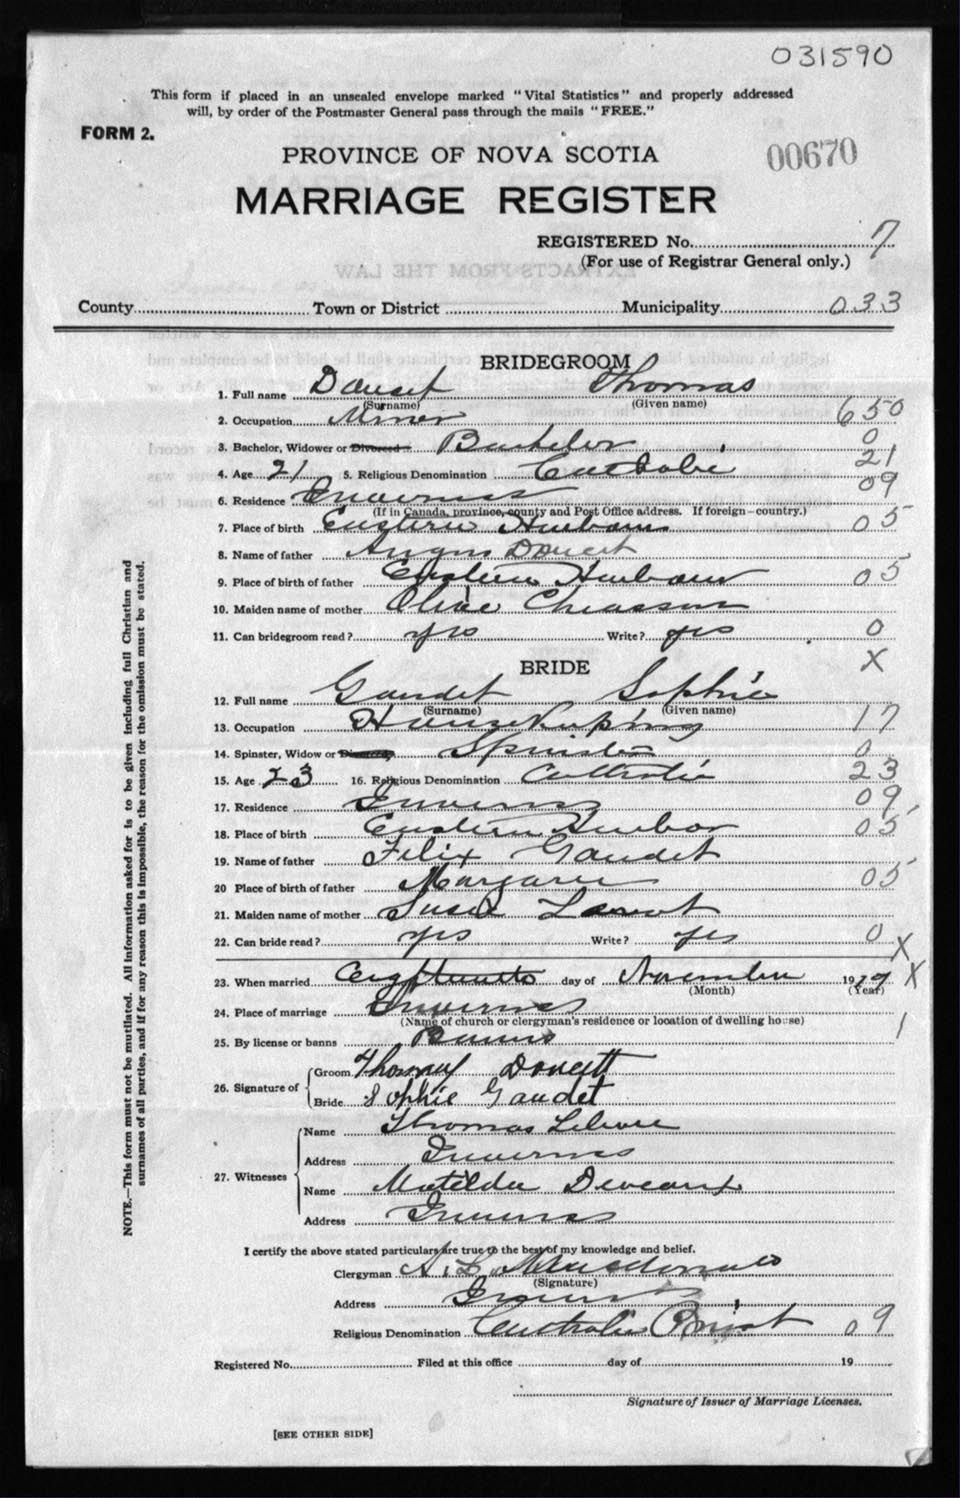 031590
This form if placed in an unsealed envelope marked "Vital Statistics" and properly addressed
will, by order of the Postmaster General pass through the mails "FREE."
FORM 2.
PROVINCE OF NOVA SCOTIA
00670
MARRIAGE REGISTER
REGISTERED No. 7
(For use of Registrar General only.)
EXTRACTS FROM THE LAW
County Town or District Municipality 033
BRIDEGROOM
1. Full name Doucet Thomas
(Surname) (Given name)
2. Occupation Miner 650
3. Bachelor, Widower or Divorced Bachelor 0
4. Age 21 5. Religious Denomination Catholic 21
6. Residence Inverness 09
(If in Canada, province, county and Post Office address. If foreign—country.)
7. Place of birth Eastern Harbour 05
8. Name of father Angus Doucet
9. Place of birth of father Eastern Harbour 05
10. Maiden name of mother Olive Chiasson
11. Can bridegroom read? yes Write? yes 0
BRIDE X
12. Full name Gaudet Sophie
(Surname) (Given name)
13. Occupation House Keeping 17
14. Spinster, Widow or Spinster 0
15. Age 23 16. Religious Denomination Catholic 23
17. Residence Inverness 09
18. Place of birth Eastern Harbor 05
19. Name of father Felix Gaudet
20 Place of birth of father Margaree 05
21. Maiden name of mother Susie
22. Can bride read? yes Write? yes 0 X
23. When married day of November 1919 X
(Month) (Year)
24. Place of marriage Inverness
(Name of church or clergyman's residence or location of dwelling house) 1
25. By license or banns Banns
26. Signature of Groom Thomas Doucett
Bride Sophie Gaudet
27. Witnesses
Name Thomas
Address Inverness
Name Matilda
Address Inverness
I certify the above stated particulars are true to the best of my knowledge and belief.
Clergyman A. L. Macdonald
(Signature)
Address Inverness
Religious Denomination Catholic Priest 09
Registered No. Filed at this office day of 19
Signature of Issuer of Marriage Licenses.
[SEE OTHER SIDE]
NOTE.—This form must not be mutilated. All information asked for is to be given including full Christian and
surnames of all parties, and if for any reason this is impossible, the reason for the omission must be stated.